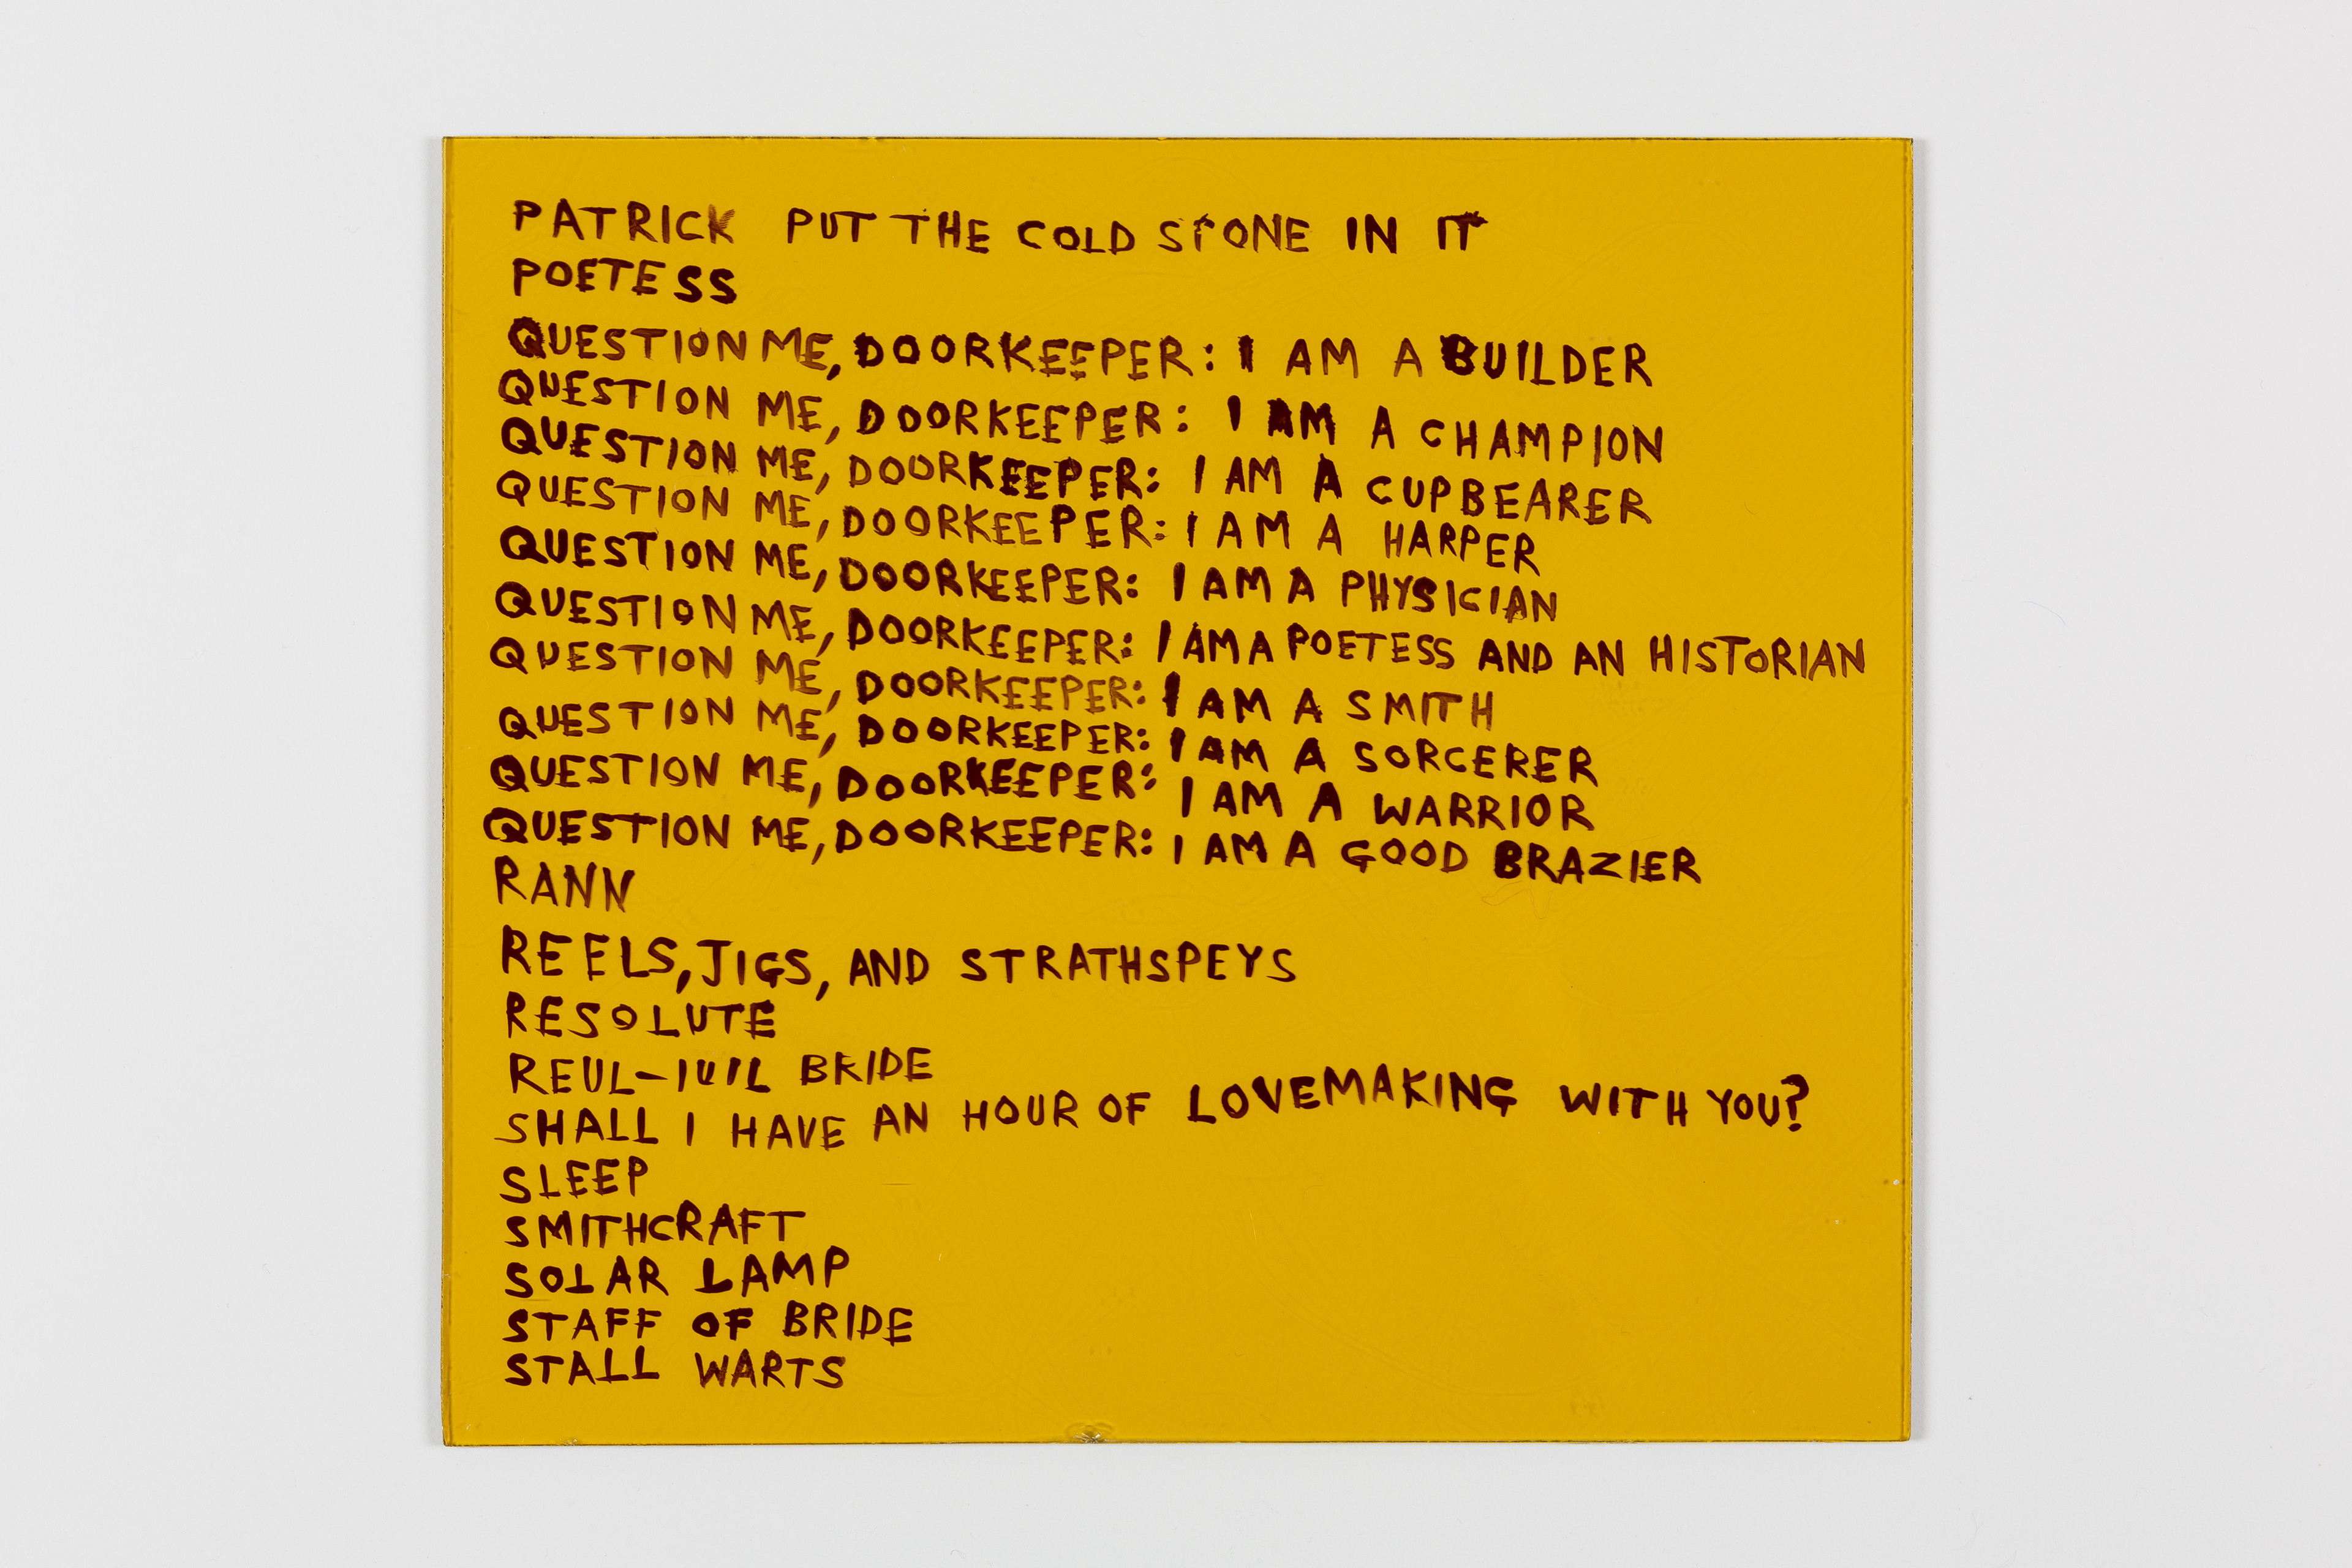 PATRICK PUT THE COLD STONE IN IT
POETESS
QUESTION ME, DOORKEEPER: I AM A BUILDER
QUESTION ME, DOORKEEPER: I AM A CHAMPION
QUESTION ME, DOORKEEPER: I AM A CUPBEARER
QUESTION ME, DOORKEEPER: I AM A HARPER
QUESTION ME, DOORKEEPER: I AM A PHYSICIAN
QUESTION ME, DOORKEEPER: I AM A POETESS AND AN HISTORIAN
QUESTION ME, DOORKEEPER: I AM A SMITH
QUESTION ME, DOORKEEPER: I AM A SORCERER
QUESTION ME, DOORKEEPER: I AM A WARRIOR
QUESTION ME, DOORKEEPER: I AM A GOOD BRAZIER
RANN
REELS, JIGS, AND STRATHSPEYS
RESOLUTE
REUL-IUIL BRIDE
SHALL I HAVE AN HOUR OF LOVEMAKING WITH YOU?
SLEEP
SMITHCRAFT
SOLAR LAMP
STAFF OF BRIDE
STALL WARTS